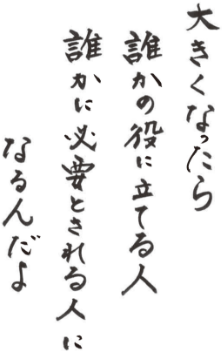 大きくなったら
誰かの役に立てる人
誰かに必要とされる人に
なるんだよ